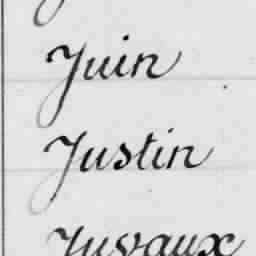 Juin
Justin
Juvaux